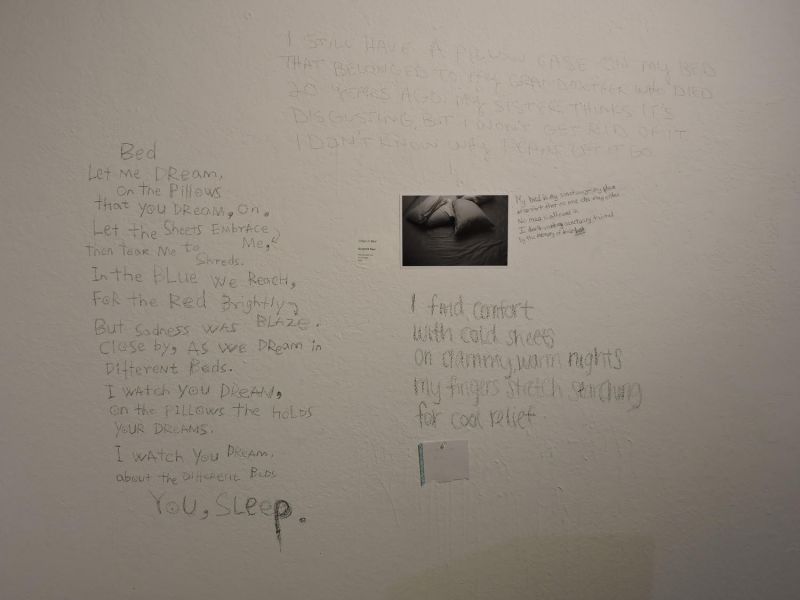 I STILL HAVE A PILLOW CASE ON MY BED
THAT BELONGED TO MY GRANDMOTHER WHO DIED
20 YEARS AGO. MY SISTER THINKS IT'S
DISGUSTING, BUT I WON'T GET RID OF IT
I DON'T KNOW WHY I CAN'T LET IT GO
Bed
Let Me DReam,
on the Pillows
that you DReam, on.
Let the Sheets Embrace
Me,
Then teaR Me to
Shreds.
In the BLue we Reach,
FoR the Red Brightly
BLAZE.
But Sadness was
Close by, As we DReam in
Different Beds.
I watch you DReam,
on the PILLOWS the holds
youR DReams.
I watch you DReam.
about the Different Beds
You, SLeep.
My bed is my sanctuary, my place
of comfort that no one else may enter.
No man is allowed in
I don't my sanctuary
by the memory of
I find comfort
with cold sheets
on clammy, warm nights
my fingers stretch searching
for cool relief.